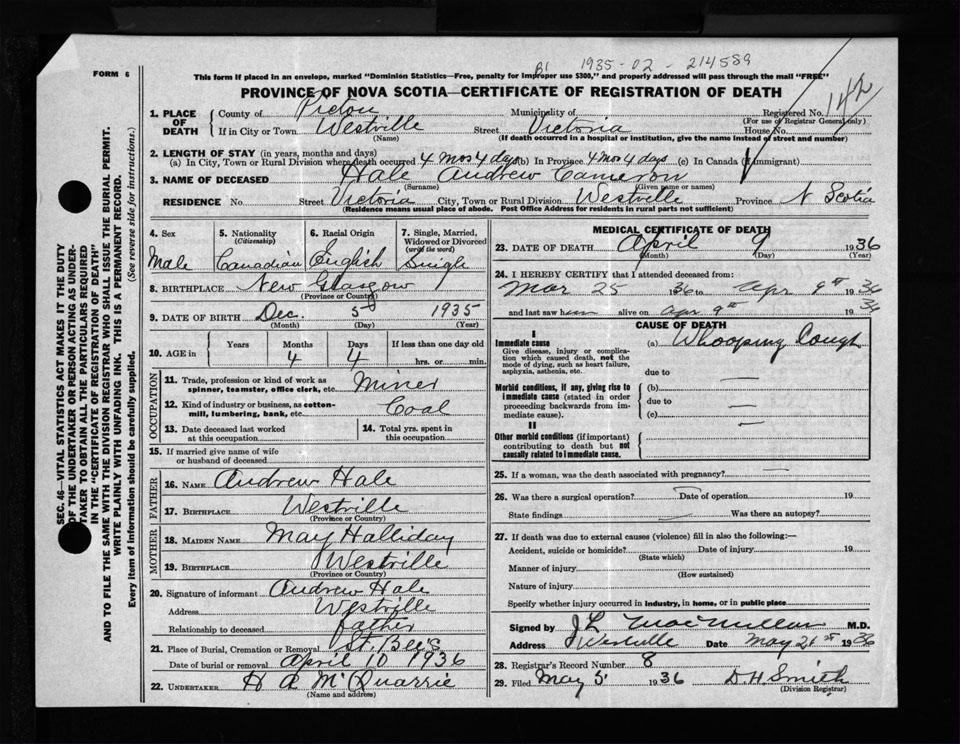 FORM 6
B1 1935-02-214589
This form if placed in an envelope, marked "Dominion Statistics—Free, penalty for improper use $300," and properly addressed will pass through the mail "FREE"
PROVINCE OF NOVA SCOTIA—CERTIFICATE OF REGISTRATION OF DEATH
142
1. PLACE OF DEATH County of Pictou Municipality of Registered No.
(For use of Registrar General only)
If in City or Town Westville Street Victoria House No.
(Name) (If death occurred in a hospital or institution, give the name instead of street and number)
2. LENGTH OF STAY (in years, months and days)
(a) In City, Town or Rural Division where death occurred 4 mos 4 days (b) In Province 4 mos 4 days (c) In Canada (if immigrant)
3. NAME OF DECEASED Hale Andrew Cameron
(Surname) (Given name or names)
RESIDENCE No. Street Victoria City, Town or Rural Division Westville Province N Scotia
(Residence means usual place of abode. Post Office Address for residents in rural parts not sufficient)
4. Sex 5. Nationality (Citizenship) 6. Racial Origin 7. Single, Married, Widowed or Divorced (write the word)
Male Canadian English Single
8. BIRTHPLACE New Glasgow
(Province or Country)
9. DATE OF BIRTH Dec. 5 1935
(Month) (Day) (Year)
10. AGE in Years Months Days If less than one day old
4 4 hrs. or min.
OCCUPATION
11. Trade, profession or kind of work as spinner, teamster, office clerk, etc. Miner
12. Kind of industry or business, as cotton-mill, lumbering, bank, etc. Coal
13. Date deceased last worked at this occupation 14. Total yrs. spent in this occupation
15. If married give name of wife or husband of deceased
FATHER
16. NAME Andrew Hale
17. BIRTHPLACE Westville
(Province or Country)
MOTHER
18. MAIDEN NAME May Halliday
19. BIRTHPLACE Westville
(Province or Country)
20. Signature of informant Andrew Hale
Address Westville
Relationship to deceased father
21. Place of Burial, Cremation or Removal St. Bee's
Date of burial or removal April 10 1936
22. UNDERTAKER H A McQuarrie
(Name and address)
MEDICAL CERTIFICATE OF DEATH
23. DATE OF DEATH April 9 1936
(Month) (Day) (Year)
24. I HEREBY CERTIFY that I attended deceased from:
Mar 25 1936 to Apr 9th 1936
and last saw him alive on Apr 9th 1936
CAUSE OF DEATH
I
Immediate cause (a) Whooping Cough
Give disease, injury or complication which caused death, not the mode of dying, such as heart failure, asphyxia, asthenia, etc.
due to
Morbid conditions, if any, giving rise to immediate cause (stated in order proceeding backwards from immediate cause).
(b)
due to
(c)
II
Other morbid conditions (if important) contributing to death but not causally related to immediate cause.
25. If a woman, was the death associated with pregnancy?
26. Was there a surgical operation? Date of operation 19
State findings Was there an autopsy?
27. If death was due to external causes (violence) fill in also the following:—
Accident, suicide or homicide? Date of injury 19
(State which)
Manner of injury
(How sustained)
Nature of injury
Specify whether injury occurred in industry, in home, or in public place
Signed by J L MacMillan M.D.
Address Westville Date May 21st 1936
28. Registrar's Record Number 8
29. Filed May 5 1936 D. H. Smith
(Division Registrar)
SEC. 46—VITAL STATISTICS ACT MAKES IT THE DUTY
OF THE UNDERTAKER OR PERSON ACTING AS UNDER-
TAKER TO OBTAIN ALL THE PARTICULARS REQUIRED
IN THE "CERTIFICATE OF REGISTRATION OF DEATH"
AND TO FILE THE SAME WITH THE DIVISION REGISTRAR WHO SHALL ISSUE THE BURIAL PERMIT.
WRITE PLAINLY WITH UNFADING INK. THIS IS A PERMANENT RECORD.
Every item of information should be carefully supplied. (See reverse side for instructions.)